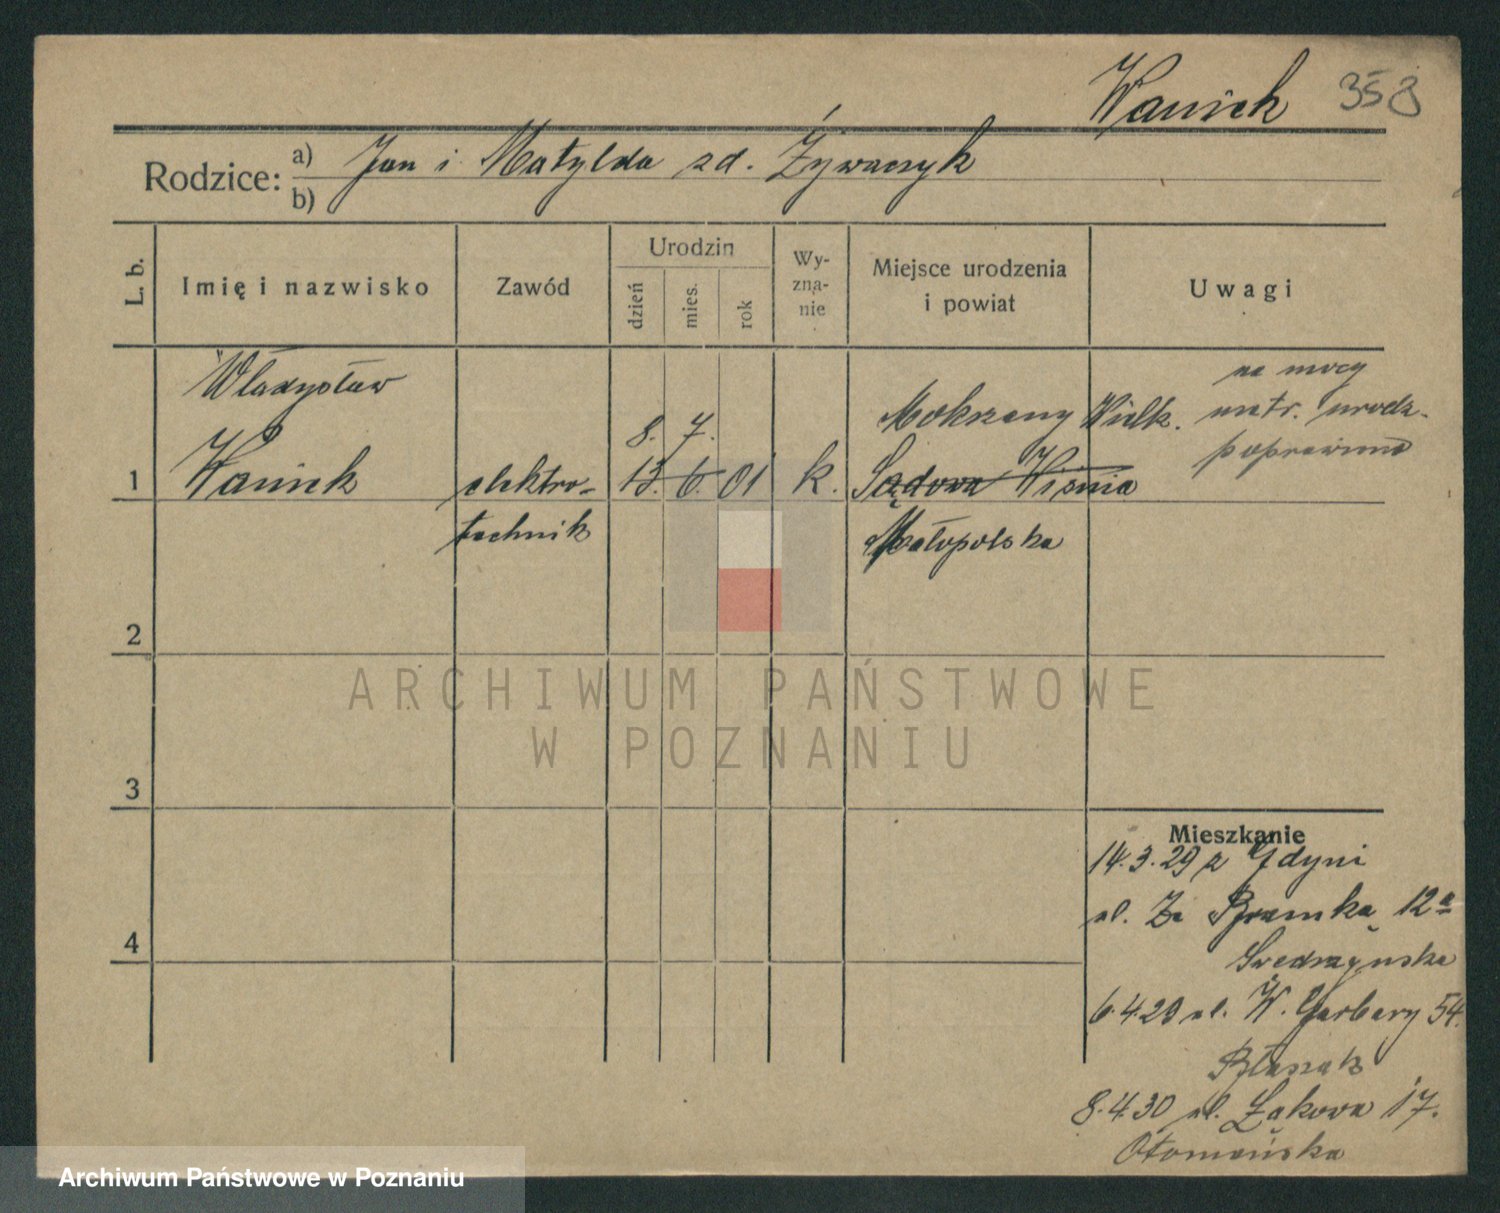 Waniek 358
Rodzice: a) Jan i Matylda zd. Żywaczyk
b)
L. b.
Imię i nazwisko
Zawód
Urodzin
dzień
mies.
rok
Wy-
zna-
nie
Miejsce urodzenia
i powiat
Uwagi
Władysław
Waniek
1
elektro-
technik
8. 7.
13. 6. 01
k.
Mokrzany Wielk.
Sądowa Wisznia
Małopolska
na mocy
metr. urodz.
poprawiono
2
3
4
Mieszkanie
14.3.29 z Gdyni
ul. Za Bramką 12a
Swedrzyńska
6.4.29 ul. W. Garbary 54.
Błaszak
8.4.30 ul. Łąkowa 17.
Otomańska
ARCHIWUM PAŃSTWOWE
W POZNANIU
Archiwum Państwowe w Poznaniu